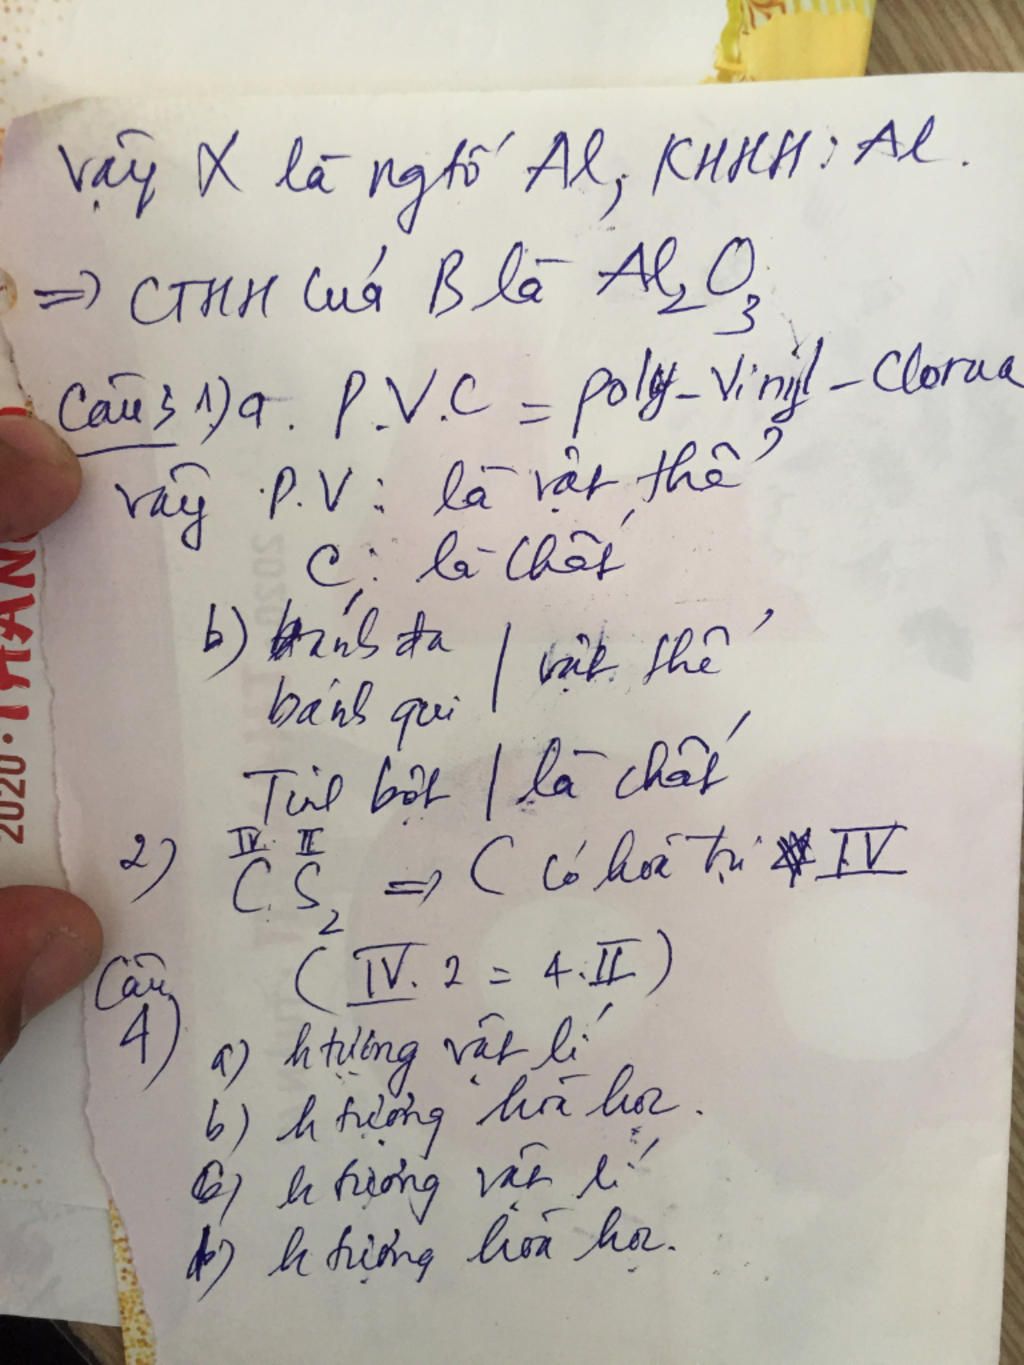 vậy X là ngtố Al, KHHH: Al.
=> CTHH Của B là Al2O3
Câu 3 1) a. P.V.C = poly-Vinyl-Clorua
vậy P.V: là vật thể
C: là chất
b) bánh đa
bánh qui | vật thể
Tinh bột | là chất
IV II
2) C S2 => C có hoá trị IV
(IV. 2 = 4. II)
Câu
4)
a) h tượng vật lí
b) h tượng hóa học.
c) h tượng vật lí
d) h tượng hóa học.
2020